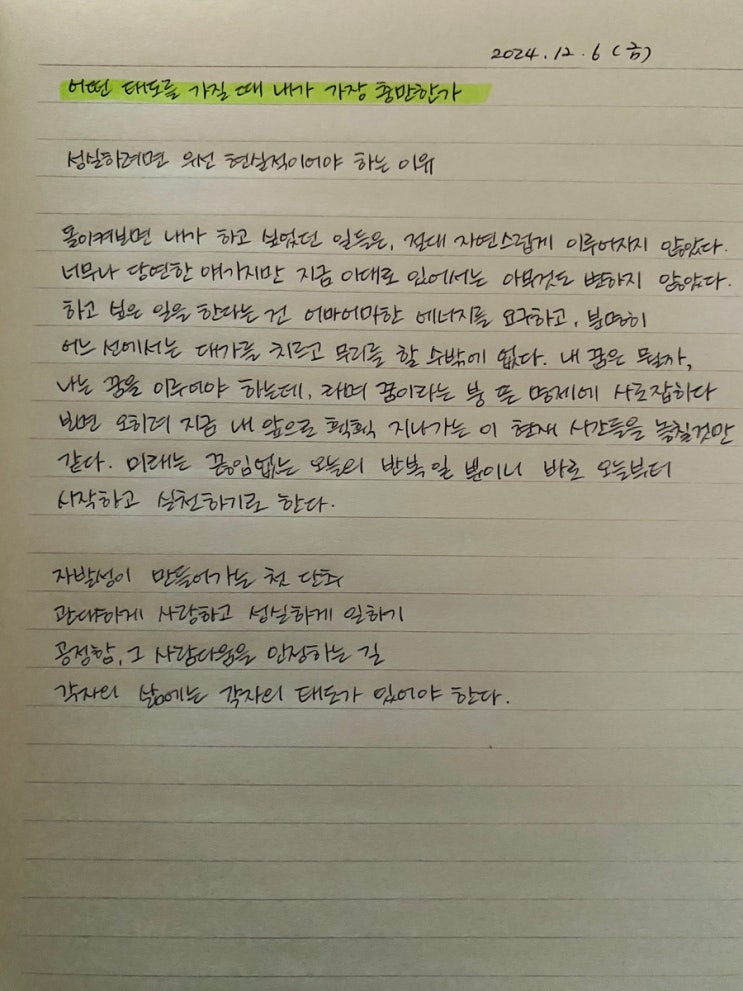 2024.12.6 (금)
어떤 태도를 가질 때 내가 가장 충만한가
성실하려면 우선 현실적이어야 하는 이유
돌이켜보면 내가 하고 싶었던 일들은, 절대 자연스럽게 이루어지지 않았다.
너무나 당연한 얘기지만 지금 이대로 있어서는 아무것도 변하지 않았다.
하고 싶은 일을 한다는 건 어마어마한 에너지를 요구하고, 분명히
어느 선에서는 대가를 치르고 무리를 할 수밖에 없다. 내 꿈은 뭘까,
나는 꿈을 이루어야 하는데, 라며 꿈이라는 붕 뜬 명제에 사로잡히다
보면 오히려 지금 내 앞으로 휙휙 지나가는 이 현재 시간들을 놓칠것만
같다. 미래는 끊임없는 오늘의 반복일 뿐이니 바로 오늘부터
시작하고 실천하기로 한다.
자발성이 만들어가는 첫 단추
관대하게 사랑하고 성실하게 일하기
공정함, 그 사람다움을 인정하는 길
각자의 삶에는 각자의 태도가 있어야 한다.